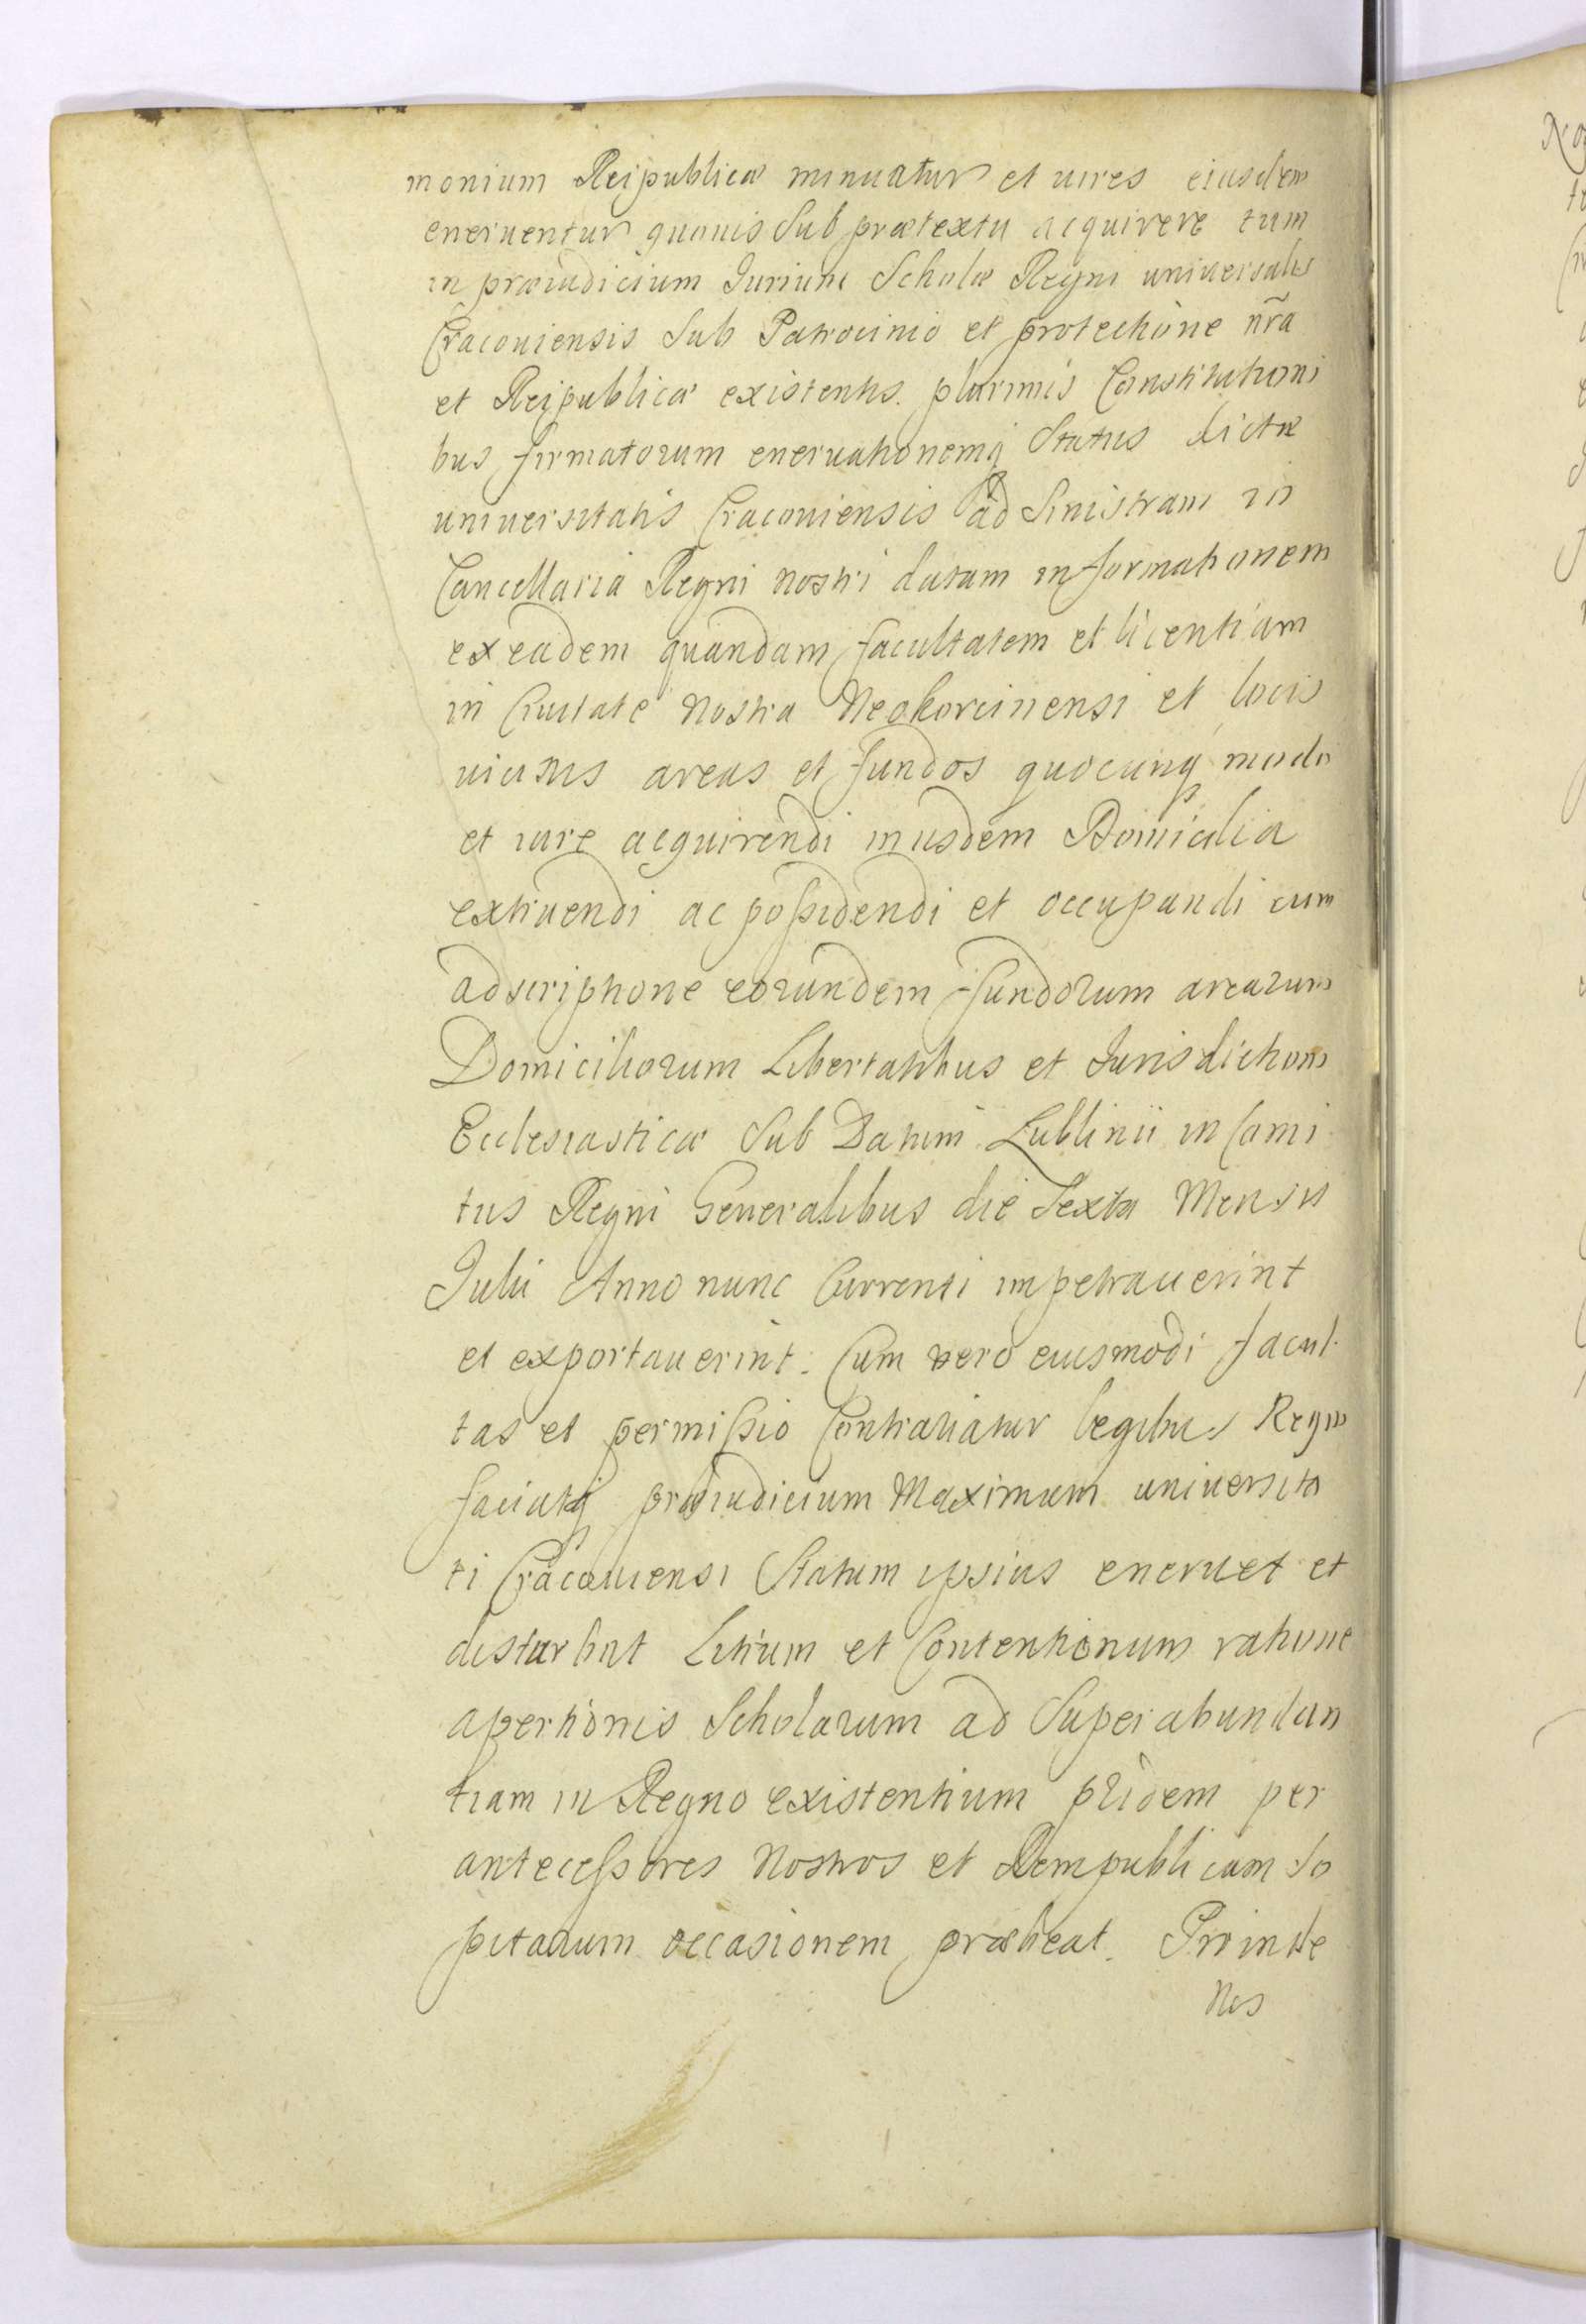 monium Reipublicæ minuatur et uires eiusdem
eneruentur quouis sub prætextu acquirere tum
in præiudicium Iurium Scholæ Regni uniuersalis
Cracouiensis sub Patrocinio et protectione nr̃a
et Reipublicæ existentis. plurimis Constitutioni
bus firmatorum eneruationemq; Status dictæ
uniuersitatis Cracouiensis ad Sinistram in
Cancellaria Regni nostri datam informationem
ex eadem quandam facultatem et licentiam
in Ciuitate nostra Neokorcinensi et locis
uicinis areas et fundos quocunq; modo
et iure acquirendi inusdem Domicilia
extruendi ac possidendi et occupandi cum
adscriptione eorundem fundorum arearum
Domiciliorum Libertatibus et Iurisdictioni
Ecclesiasticæ Sub Datum Lublinii in Comi
tiis Regni Generalibus die Sexta Mensis
Iulii Anno nunc Currenti impetrauerint
et exportauerint. Cum vero eiusmodi facul
tas et permissio Contrariatur legibus Regni
faciatq; præiudicium Maximum uniuersita
ti Cracouiensi Statum ipsius eneruet et
disturbat Litium et Contentionum ratione
apertionis Scholarum ad Superabundan
tiam in Regno existentium pridem per
antecessores Nostros et Rempublicam so
pitarum occasionem præbeat. Proinde
Nos